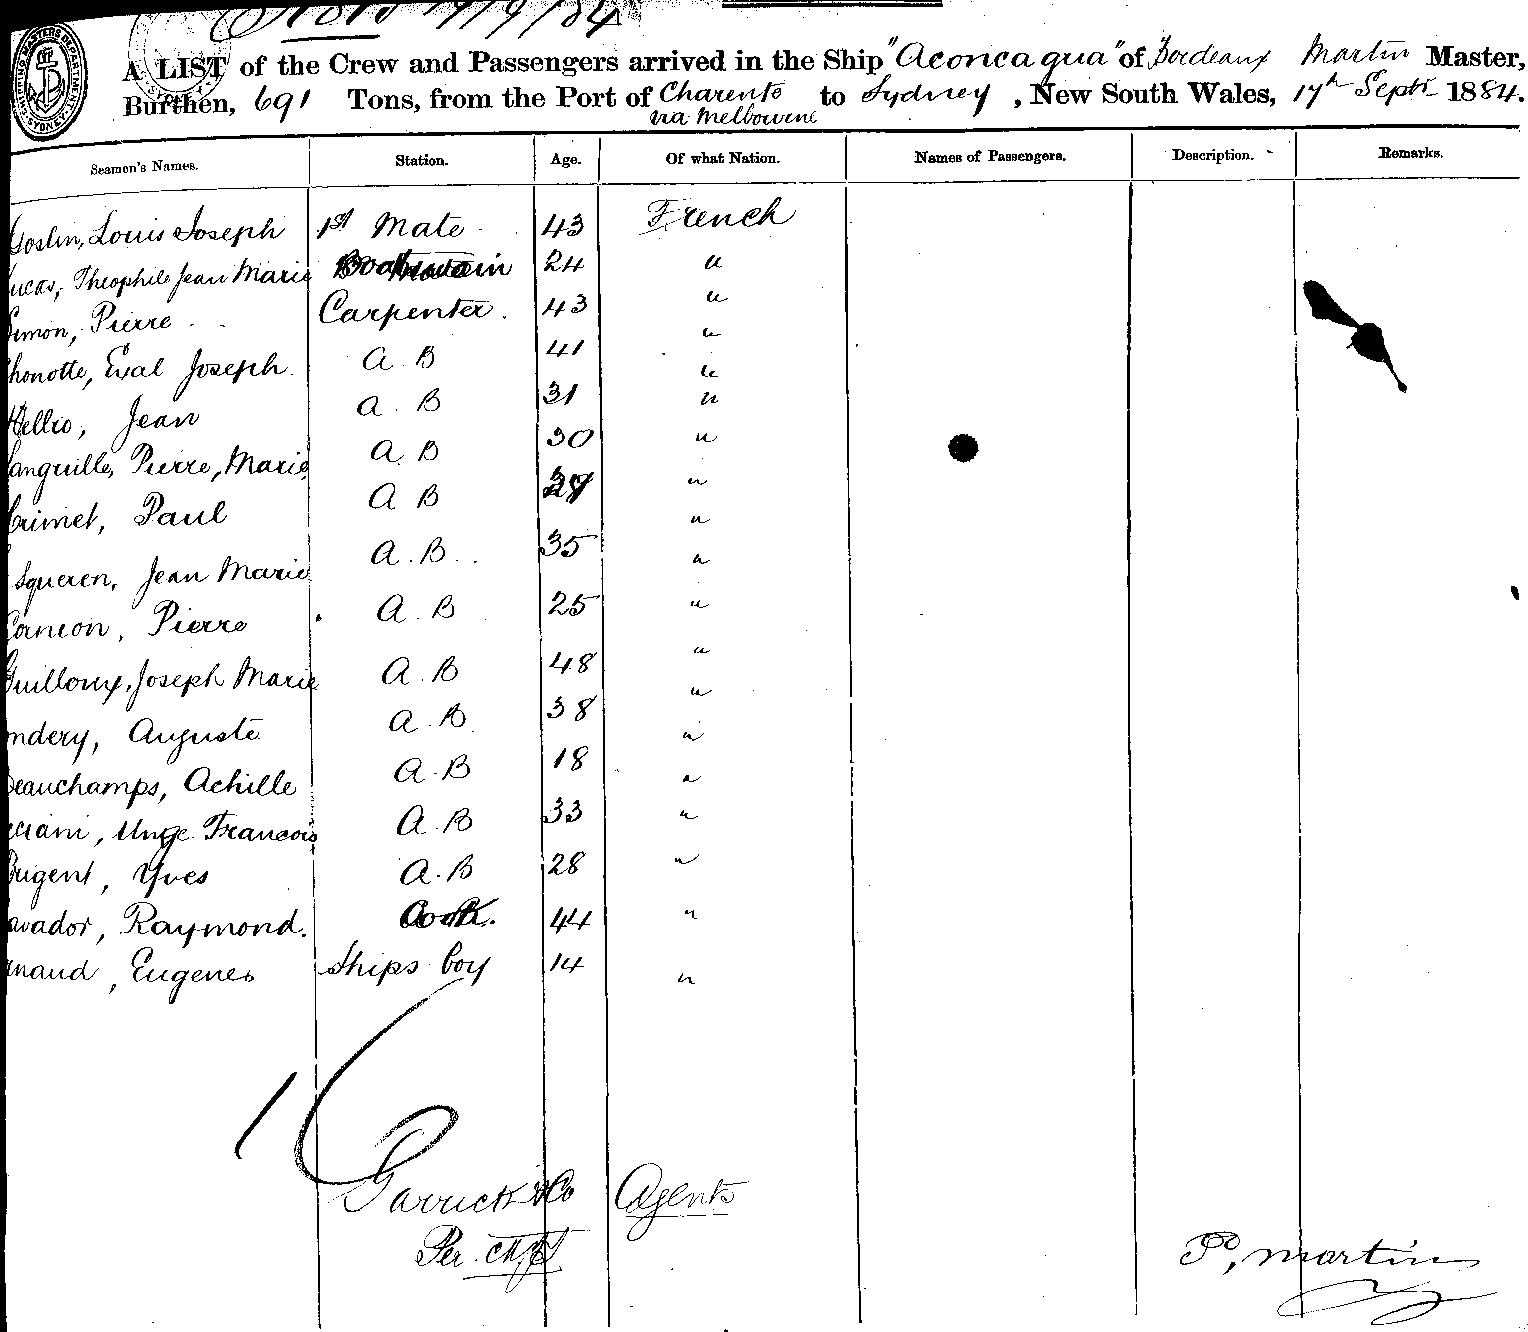 19/9/84
A LIST of the Crew and Passengers arrived in the Ship "Aconcagua" of Bordeaux Martin Master,
Burthen, 691 Tons, from the Port of Charente to Sydney, New South Wales, 17th Septr 1884.
via Melbourne
Seamen's Names. Station. Age. Of what Nation. Names of Passengers. Description. Remarks.
Goslin, Louis Joseph 1st Mate 43 French
Lucas, Theophile Jean Marie Boatswain 24 "
Simon, Pierre Carpenter. 43 "
honotte, Exal Joseph. A. B 41 "
Hellio, Jean A. B 31 "
Languille, Pierre, Marie A. B 30 "
rimet, Paul A B "
squeren, Jean Marie A. B. 35 "
Corneon, Pierre A. B 25 "
Guilloux, Joseph Marie A. B 48 "
ndery, Auguste A. B 38 "
Beauchamps, Achille A. B 18 "
ciani, Ange Francois A. B 33 "
Brigent, Yves A. B 28 "
avador, Raymond. Cook. 44 "
naud, Eugene Ships boy 14 "
16
Garrick & Co Agents
Per
P. Martin